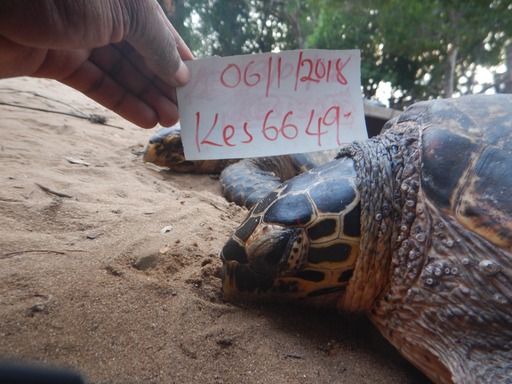 06/1/2018
Kes6649-